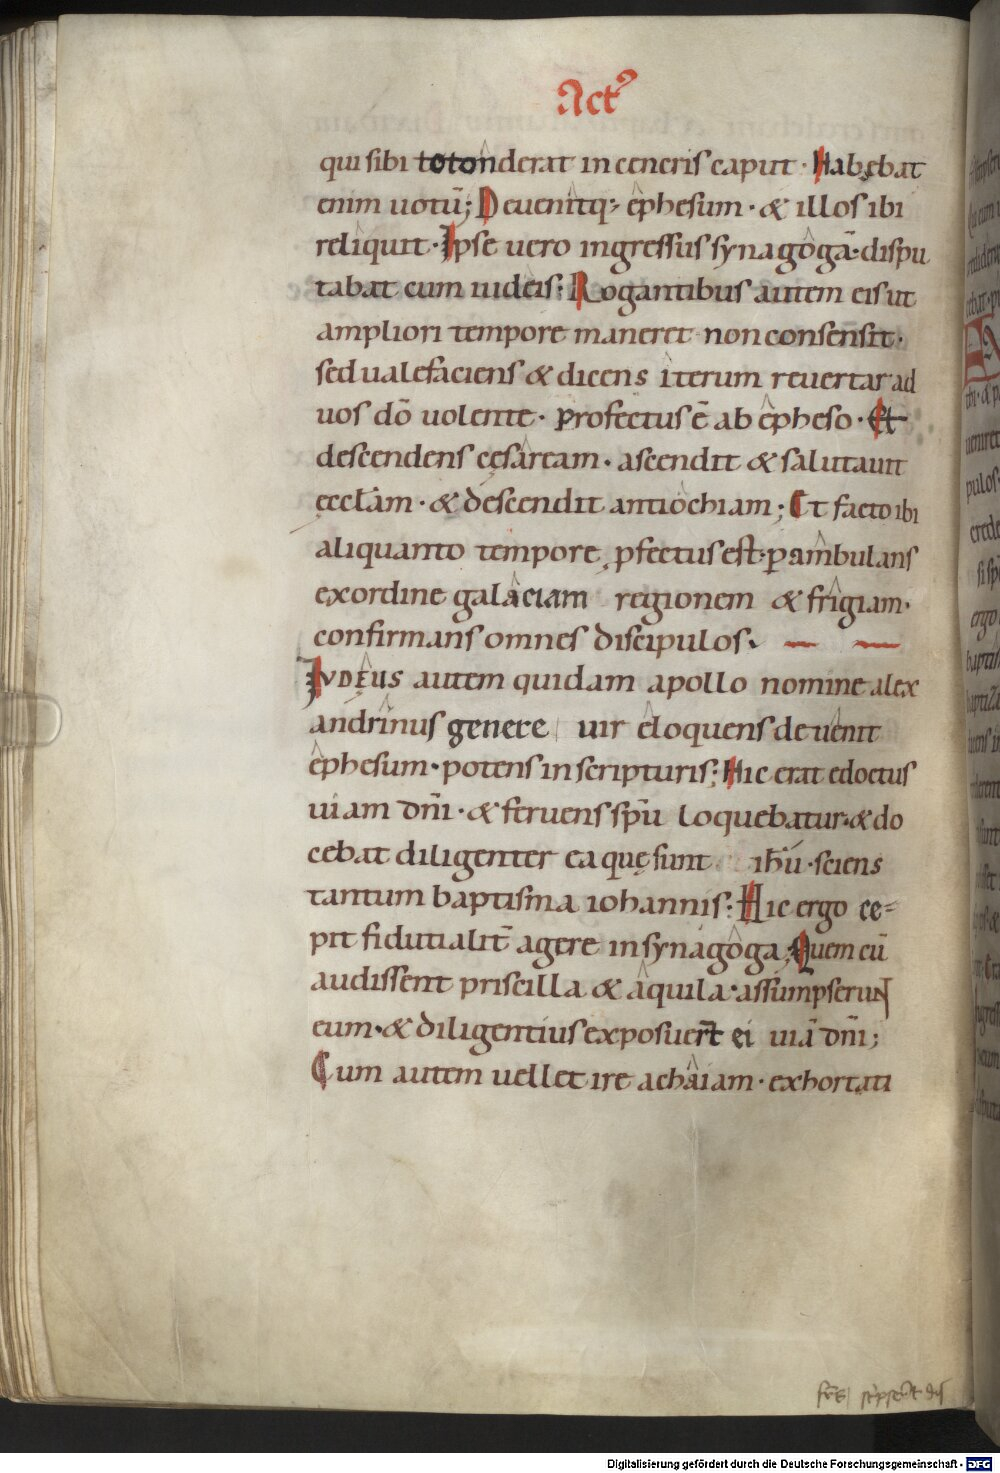 Act᾽
qui sibi totonderat in ceneris caput · Habebat
enim uotū; Deuenitq; ephesum · & illos ibi
reliquit · Ipse uero ingressus synagogā · dispu
tabat cum iudeis: Rogantibus autem eis ut
ampliori tempore maneret non consensit ·
sed ualefaciens & dicens iterum reuertar ad
uos dō uolente · Profectus ē ab epheso · Et
descendens cęsaream · ascendit & salutauit
ęcclam · & descendit antiochiam; Et facto ibi
aliquanto tempore ꝓfectus est · ꝑambulans
ex ordine galaciam regionem & frigiam ·
confirmans omnes discipulos ·
IVDEUS autem quidam apollo nomine alex
andrinus genere uir eloquens deuenit
ephesum · potens in scripturis: Hic erat edoctus
uiam dñi · & feruens spū loquebatur · & do
cebat diligenter ea quę sunt ihū · sciens
tantum baptisma iohannis: Hic ergo ce=
pit fidutialit̄ agere in synagoga; Quem cū
audissent priscilla & aquila · assumpserunt
eum · & diligentius exposuer̄t ei uiā dñi;
Cum autem uellet ire achaiam · exhortati
Digitalisierung gefördert durch die Deutsche Forschungsgemeinschaft - DFG